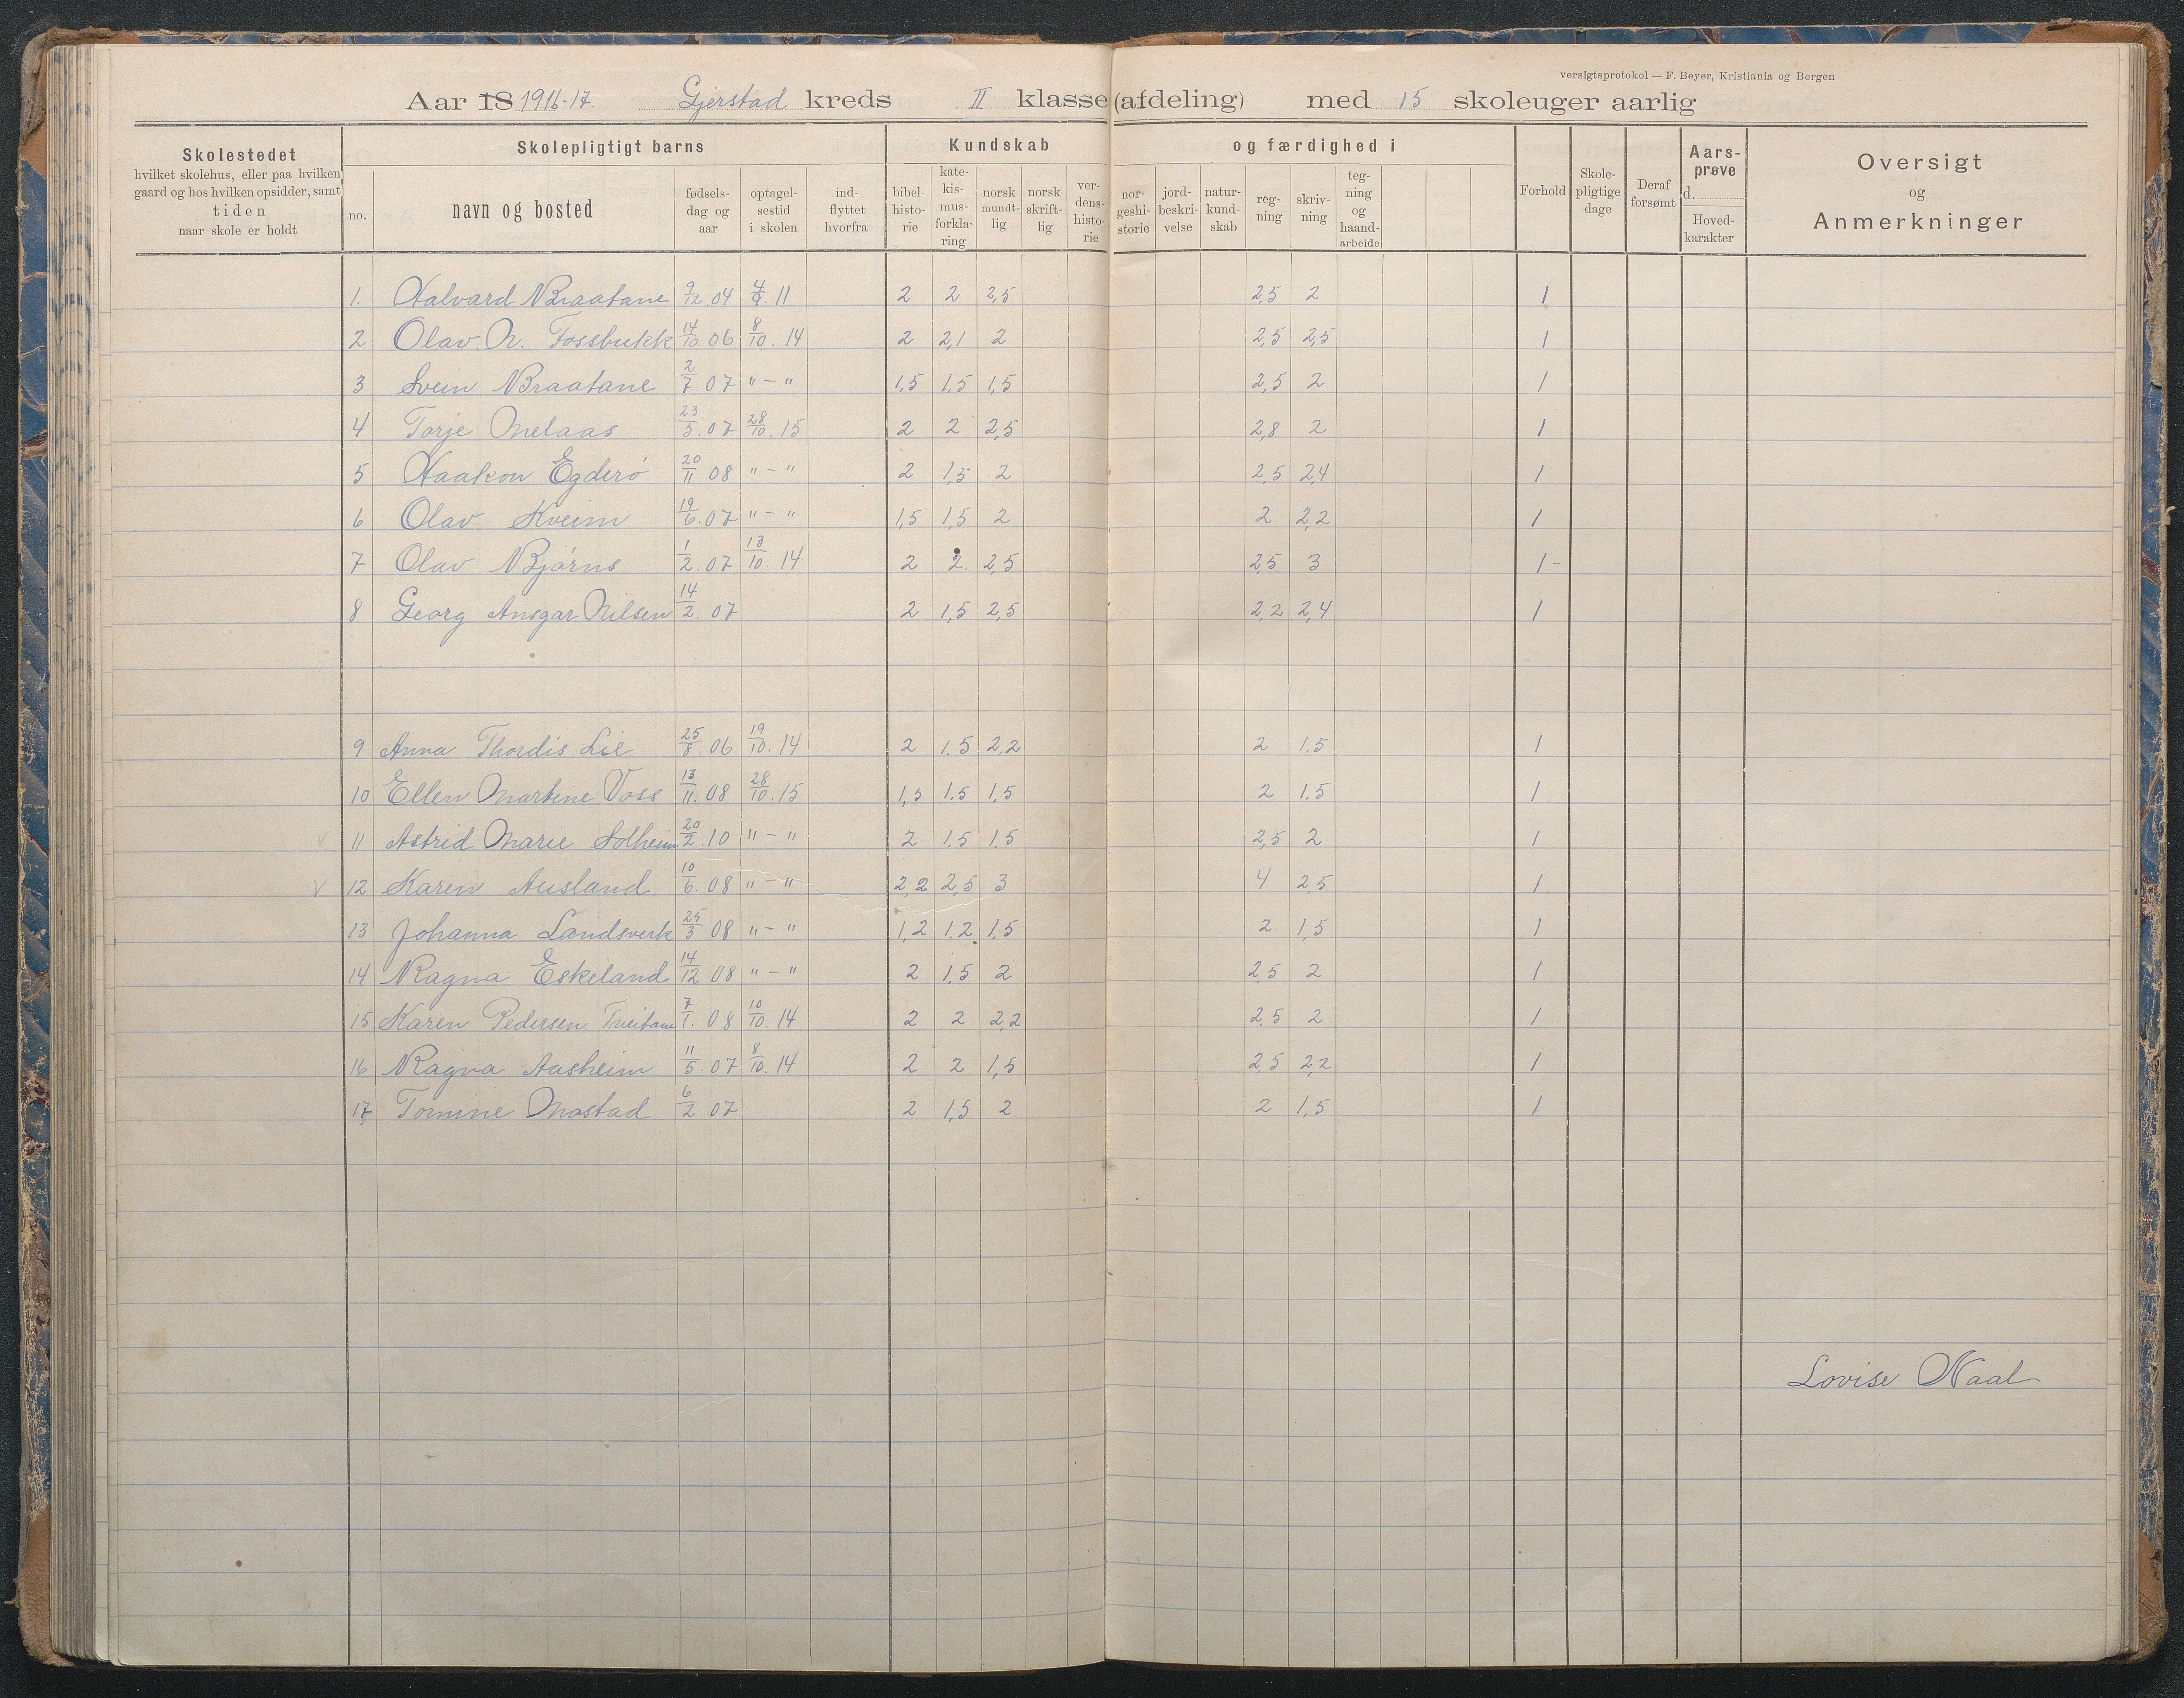 versigtsprotokol — F. Beyer, Kristiania og Bergen
Aar 18 1916-17. Gjerstad kreds II klasse (afdeling) med 15 skoleuger aarlig
Skolestedet hvilket skolehus, eller paa hvilken gaard og hos hvilken opsidder, samt tiden naar skole er holdt
Skolepligtigt barns
no. navn og bosted fødsels-dag og aar optagel-sestid i skolen ind-flyttet hvorfra
Kundskab og færdighed i
bibel-histo-rie kate-kis-mus-forkla-ring norsk mundt-lig norsk skrift-lig ver-dens-histo-rie nor-geshi-storie jord-beskri-velse natur-kund-skab reg-ning skriv-ning teg-ning og haand-arbeide
Forhold Skole-pligtige dage Deraf forsømt Aars-prøve d. Hoved-karakter
Oversigt og Anmerkninger
1. Halvard Braatane 9/12.04 4/9.11 2 2 2,5 2,5 2 1
2 Olav N. Fossbukk 14/10.06 8/10.14 2 2,1 2 2,5 2,5 1
3 Svein Braatane 2/7 07 "-" 1,5 1,5 1,5 2,5 2 1
4 Torje Melaas 23/5.07 28/10.15 2 2 2,5 2,8 2 1
5 Haakon Egderø 20/11 08 "-" 2 1,5 2 2,5 2,4 1
6 Olav Kveim 19/6.07 "-" 1,5 1,5 2 2 2,2 1
7 Olav Bjørns 1/2.07 13/10.14 2 2. 2,5 2,5 3 1-
8 Georg Ansgar Nilsen 14/2.07 2 1,5 2,5 2,2 2,4 1
9 Anna Thordis Lie 25/8.06 19/10.14 2 1.5 2,2 2 1.5 1
10 Ellen Martine Voss 13/11.08 28/10.15 1,5 1.5 1,5 2 1.5 1
11 Astrid Marie Solheim 20/2.10 "-" 2 1.5 1.5 2,5 2 1
12 Karen Ausland 10/6.08 "-" 2,2 2,5 3 4 2,5 1
13 Johanna Landsverk 25/3 08 "-" 1,2 1.2 1,5 2 1,5 1
14 Ragna Eskeland 14/12 08 "-" 2 1,5 2 2,5 2 1
15 Karen Pedersen 7/1.08 10/10.14 2 2 2,2 2,5 2 1
16 Ragna Aasheim 11/5.07 8/10.14 2 2 1,5 2,5 2,2 1
17 Tomine Mostad 6/2 07 2 1,5 2 2 1,5 1
Lovise Naal